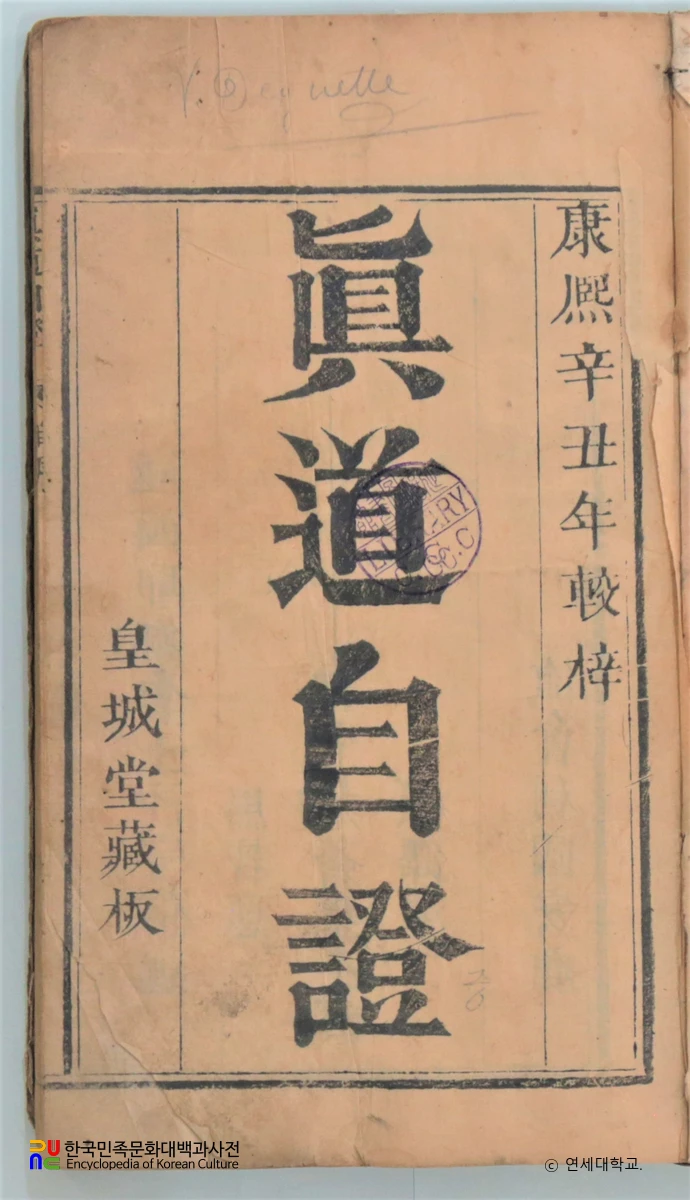 康熙辛丑年較梓
眞道自證
皇城堂藏板
LIBRARY
C.C.C
증
한국민족문화대백과사전
Encyclopedia of Korean Culture
ⓒ 연세대학교.